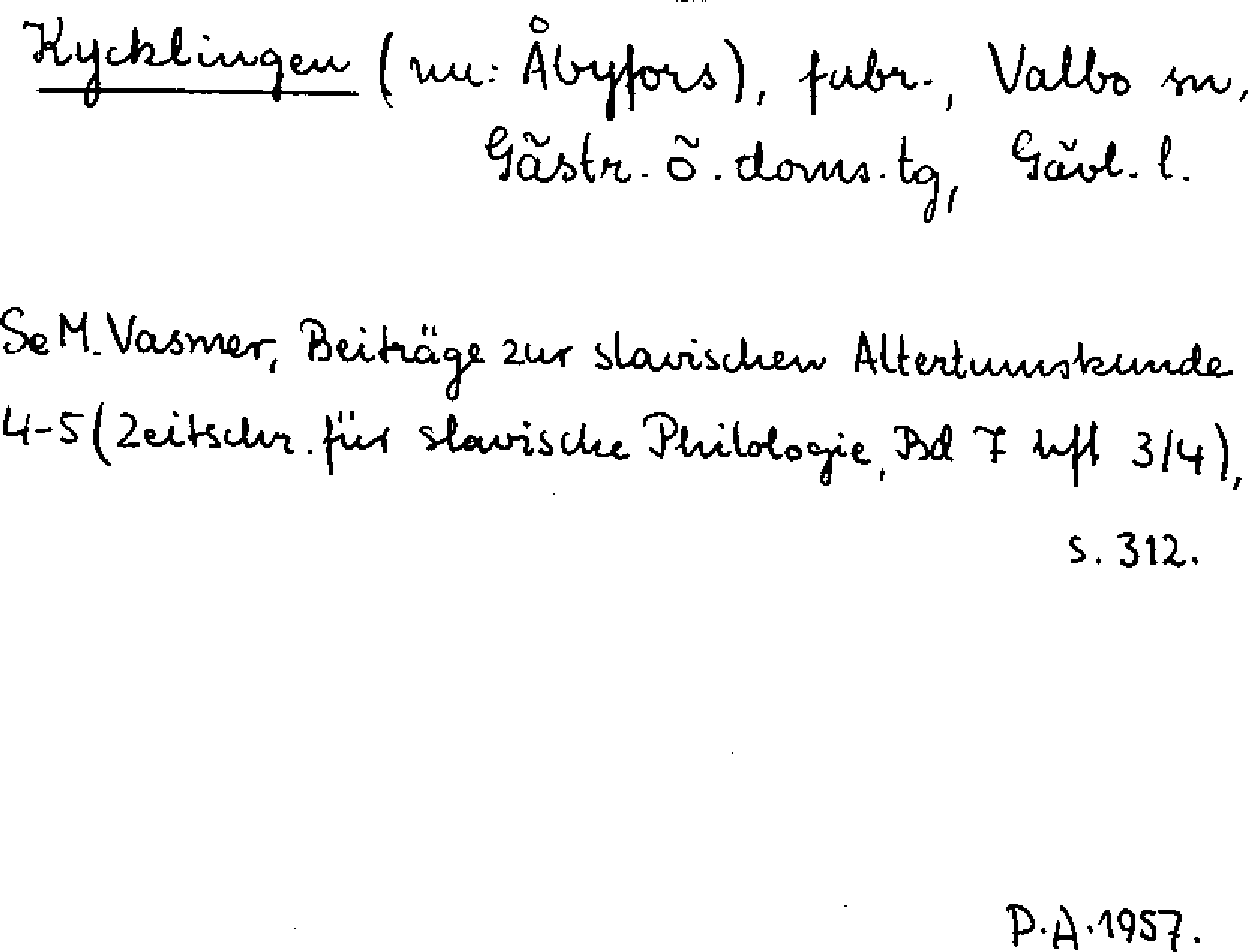 Kycklingen (nu: Åbyfors), fabr., Valbo sn,
Gästr. ö. doms. tg, Gävl. l.
Se M. Vasmer, Beiträge zur slavischen Altertumskunde
4-5 (Zeitschr. für slavische Philologie, Bd 7 hft 3/4),
s. 312.
P.A. 1957.